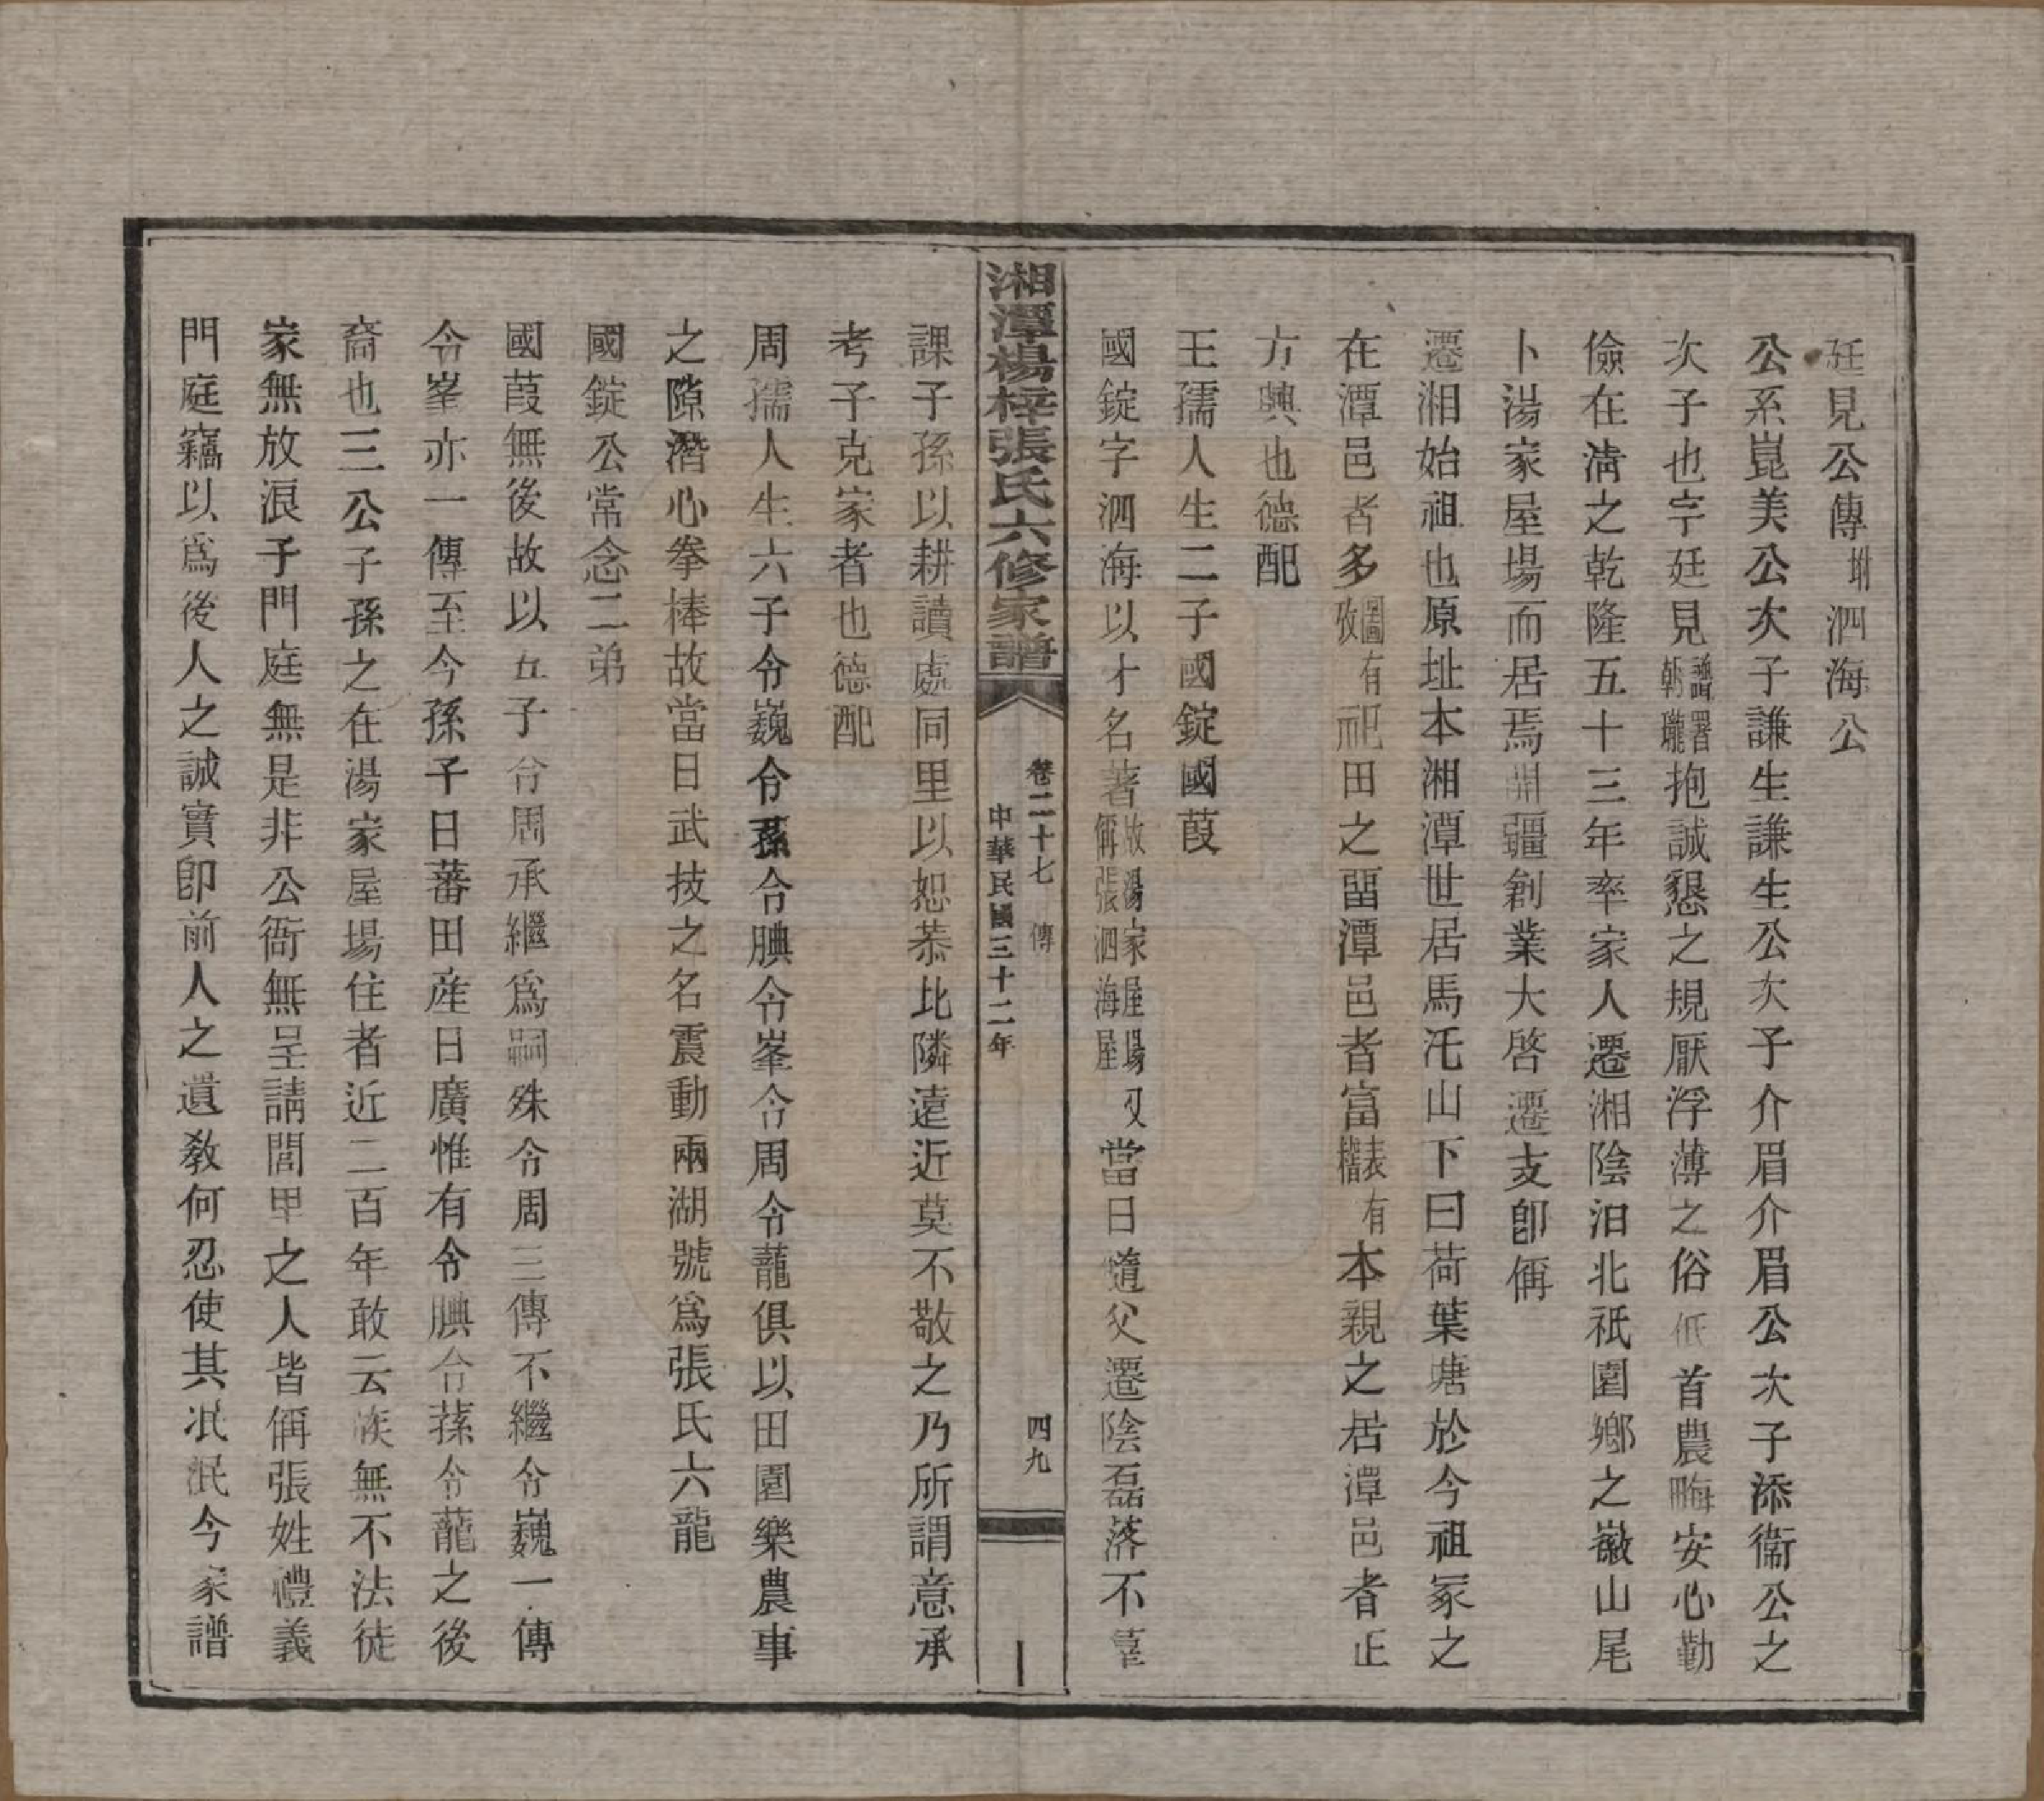 廷見公傳坿泗海公
公系崑美公次子謙生謙生公次子介眉介眉公次子添衞公之
次子也字廷見譜署朝瓏抱誠懇之規厭浮薄之俗低首農畮安心勤
儉在清之乾隆五十三年率家人遷湘陰汨北祇園鄉之嶶山尾
卜湯家屋場而居焉開疆創業大啓遷支卽偁
遷湘始祖也原址本湘潭世居馬汑山下曰荷葉塘於今祖冢之
在潭邑者多圖攷有祀田之畱潭邑者富表楷有本親之居潭邑者正
方興也德配
王孺人生二子國錠國葭
國錠字泗海以才名著故湯家屋場又偁張泗海屋當日隨父遷陰磊落不羣
湘潭楊梓張氏六修家譜
卷二十七 傳
四九
中華民國三十二年
課子孫以耕讀處同里以恕恭比隣遠近莫不敬之乃所謂意承
考子克家者也德配
周孺人生六子令巍令蓀令腆令峯令周令蘢俱以田園樂農事
之隙潛心拳棒故當日武技之名震動兩湖號爲張氏六龍
國錠公常念二弟
國葭無後故以五子令周承繼爲嗣殊令周三傳不繼令巍一傳
令峯亦一傳至今孫子日蕃田産日廣惟有令腆令蓀令蘢之後
裔也三公子孫之在湯家屋場住者近二百年敢云族無不法徒
家無放浪子門庭無是非公衙無呈請閭甲之人皆偁張姓禮義
門庭竊以爲後人之誠實卽前人之遺敎何忍使其泯泯今家譜